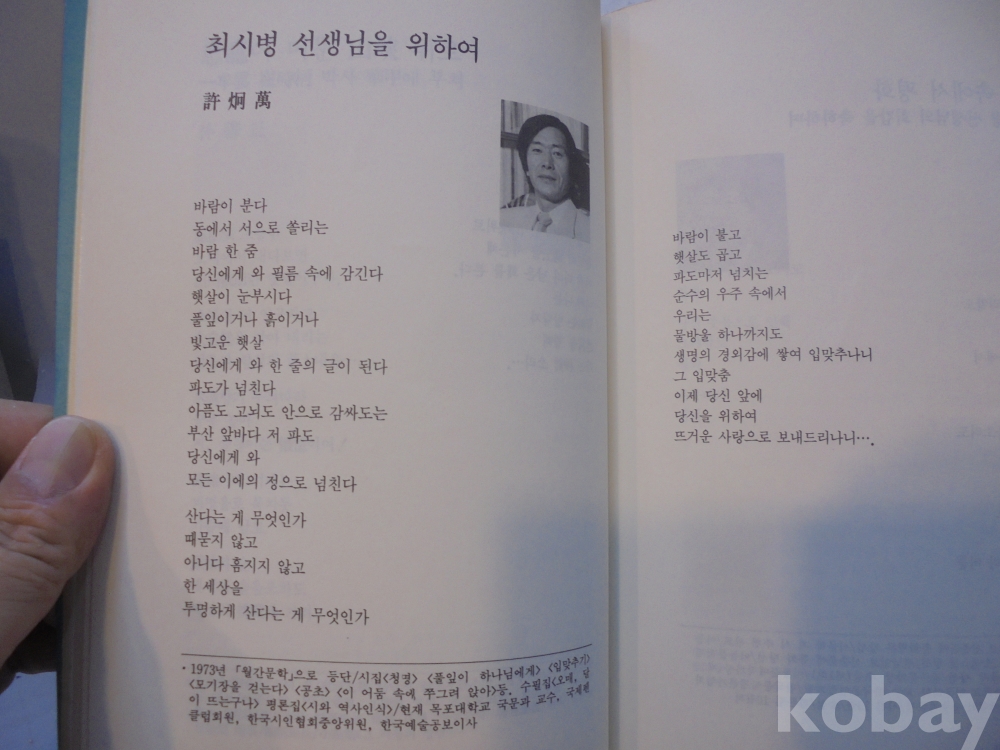 최시병 선생님을 위하여
許炯萬
바람이 분다
동에서 서으로 쏠리는
바람 한 줌
당신에게 와 필름 속에 감긴다
햇살이 눈부시다
풀잎이거나 흙이거나
빛고운 햇살
당신에게 와 한 줄의 글이 된다
파도가 넘친다
아픔도 고뇌도 안으로 감싸도는
부산 앞바다 저 파도
당신에게 와
모든 이에의 정으로 넘친다
산다는 게 무엇인가
때묻지 않고
아니다 흠지지 않고
한 세상을
투명하게 산다는 게 무엇인가
· 1973년 「월간문학」으로 등단/시집<청명> <풀잎이 하나님에게> <입맞추기>
<모기장을 걷는다> <공초> <이 어둠 속에 쭈그려 앉아>등, 수필집<오매, 달
이 뜨는구나> 평론집<시와 역사인식>/현재 목포대학교 국문과 교수, 국제펜
클럽회원, 한국시인협회중앙위원, 한국예술공보이사
바람이 불고
햇살도 곱고
파도마저 넘치는
순수의 우주 속에서
우리는
물방울 하나까지도
생명의 경외감에 쌓여 입맞추나니
그 입맞춤
이제 당신 앞에
당신을 위하여
뜨거운 사랑으로 보내드리나니….
kobay